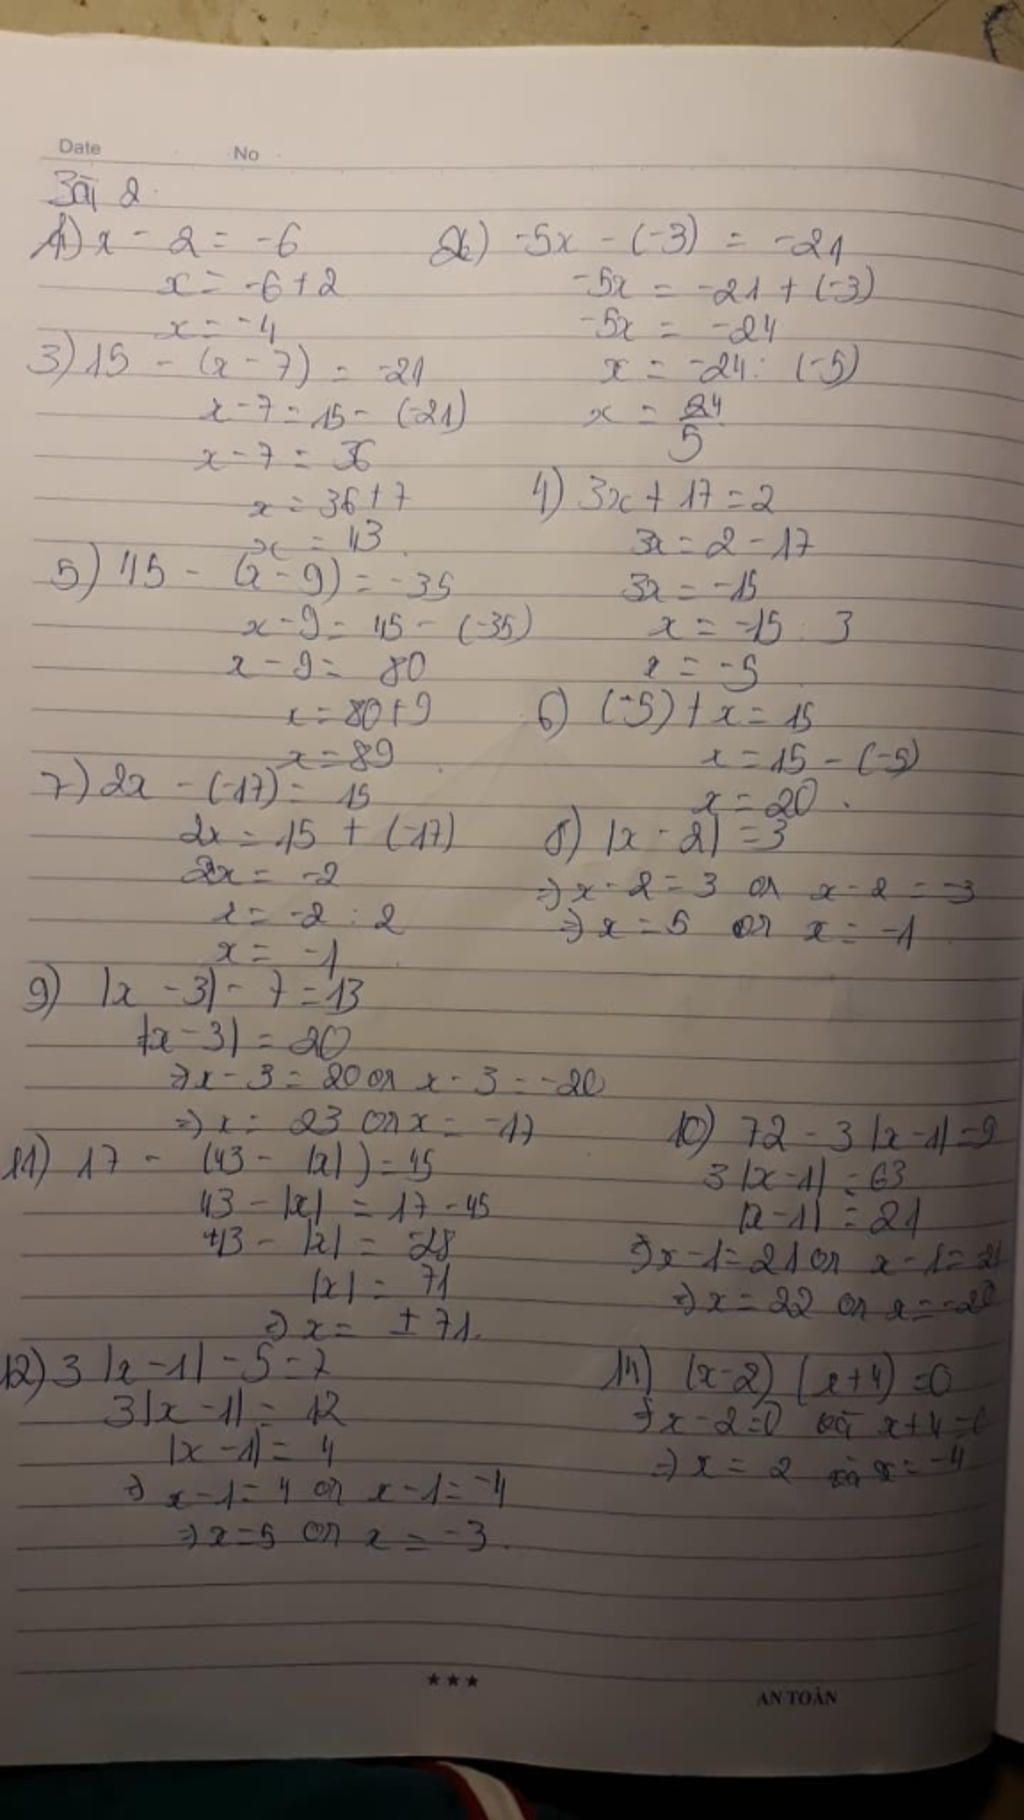 Date No
Bài 2
1) x - 2 = -6
x = -6 + 2
x = -4
2) -5x - (-3) = -21
-5x = -21 + (-3)
-5x = -24
x = -24 : (-5)
x = 24/5
3) 15 - (x - 7) = -21
x - 7 = 15 - (-21)
x - 7 = 36
x = 36 + 7
x = 43
4) 3x + 17 = 2
3x = 2 - 17
3x = -15
x = -15 : 3
x = -5
5) 45 - (x - 9) = -35
x - 9 = 45 - (-35)
x - 9 = 80
x = 80 + 9
x = 89
6) (-5) + x = 15
x = 15 - (-5)
x = 20.
7) 2x - (-17) = 15
2x = 15 + (-17)
2x = -2
x = -2 : 2
x = -1
8) |x - 2| = 3
=> x - 2 = 3 or x - 2 = -3
=> x = 5 or x = -1
9) |x - 3| - 7 = 13
|x - 3| = 20
=> x - 3 = 20 or x - 3 = -20
=> x = 23 or x = -17
10) 72 - 3|x - 1| = 9
3|x - 1| = 63
|x - 1| = 21
=> x - 1 = 21 or x - 1 = 21
=> x = 22 or x = -20
11) 17 - (43 - |x|) = 45
43 - |x| = 17 - 45
43 - |x| = -28
|x| = 71
=> x = ± 71.
12) 3|x - 1| - 5 = 7
3|x - 1| = 12
|x - 1| = 4
=> x - 1 = 4 or x - 1 = -4
=> x = 5 or x = -3.
14) (x - 2) (x + 4) = 0
=> x - 2 = 0 và x + 4 = 0
=> x = 2 và x = -4
★★★
AN TOÀN